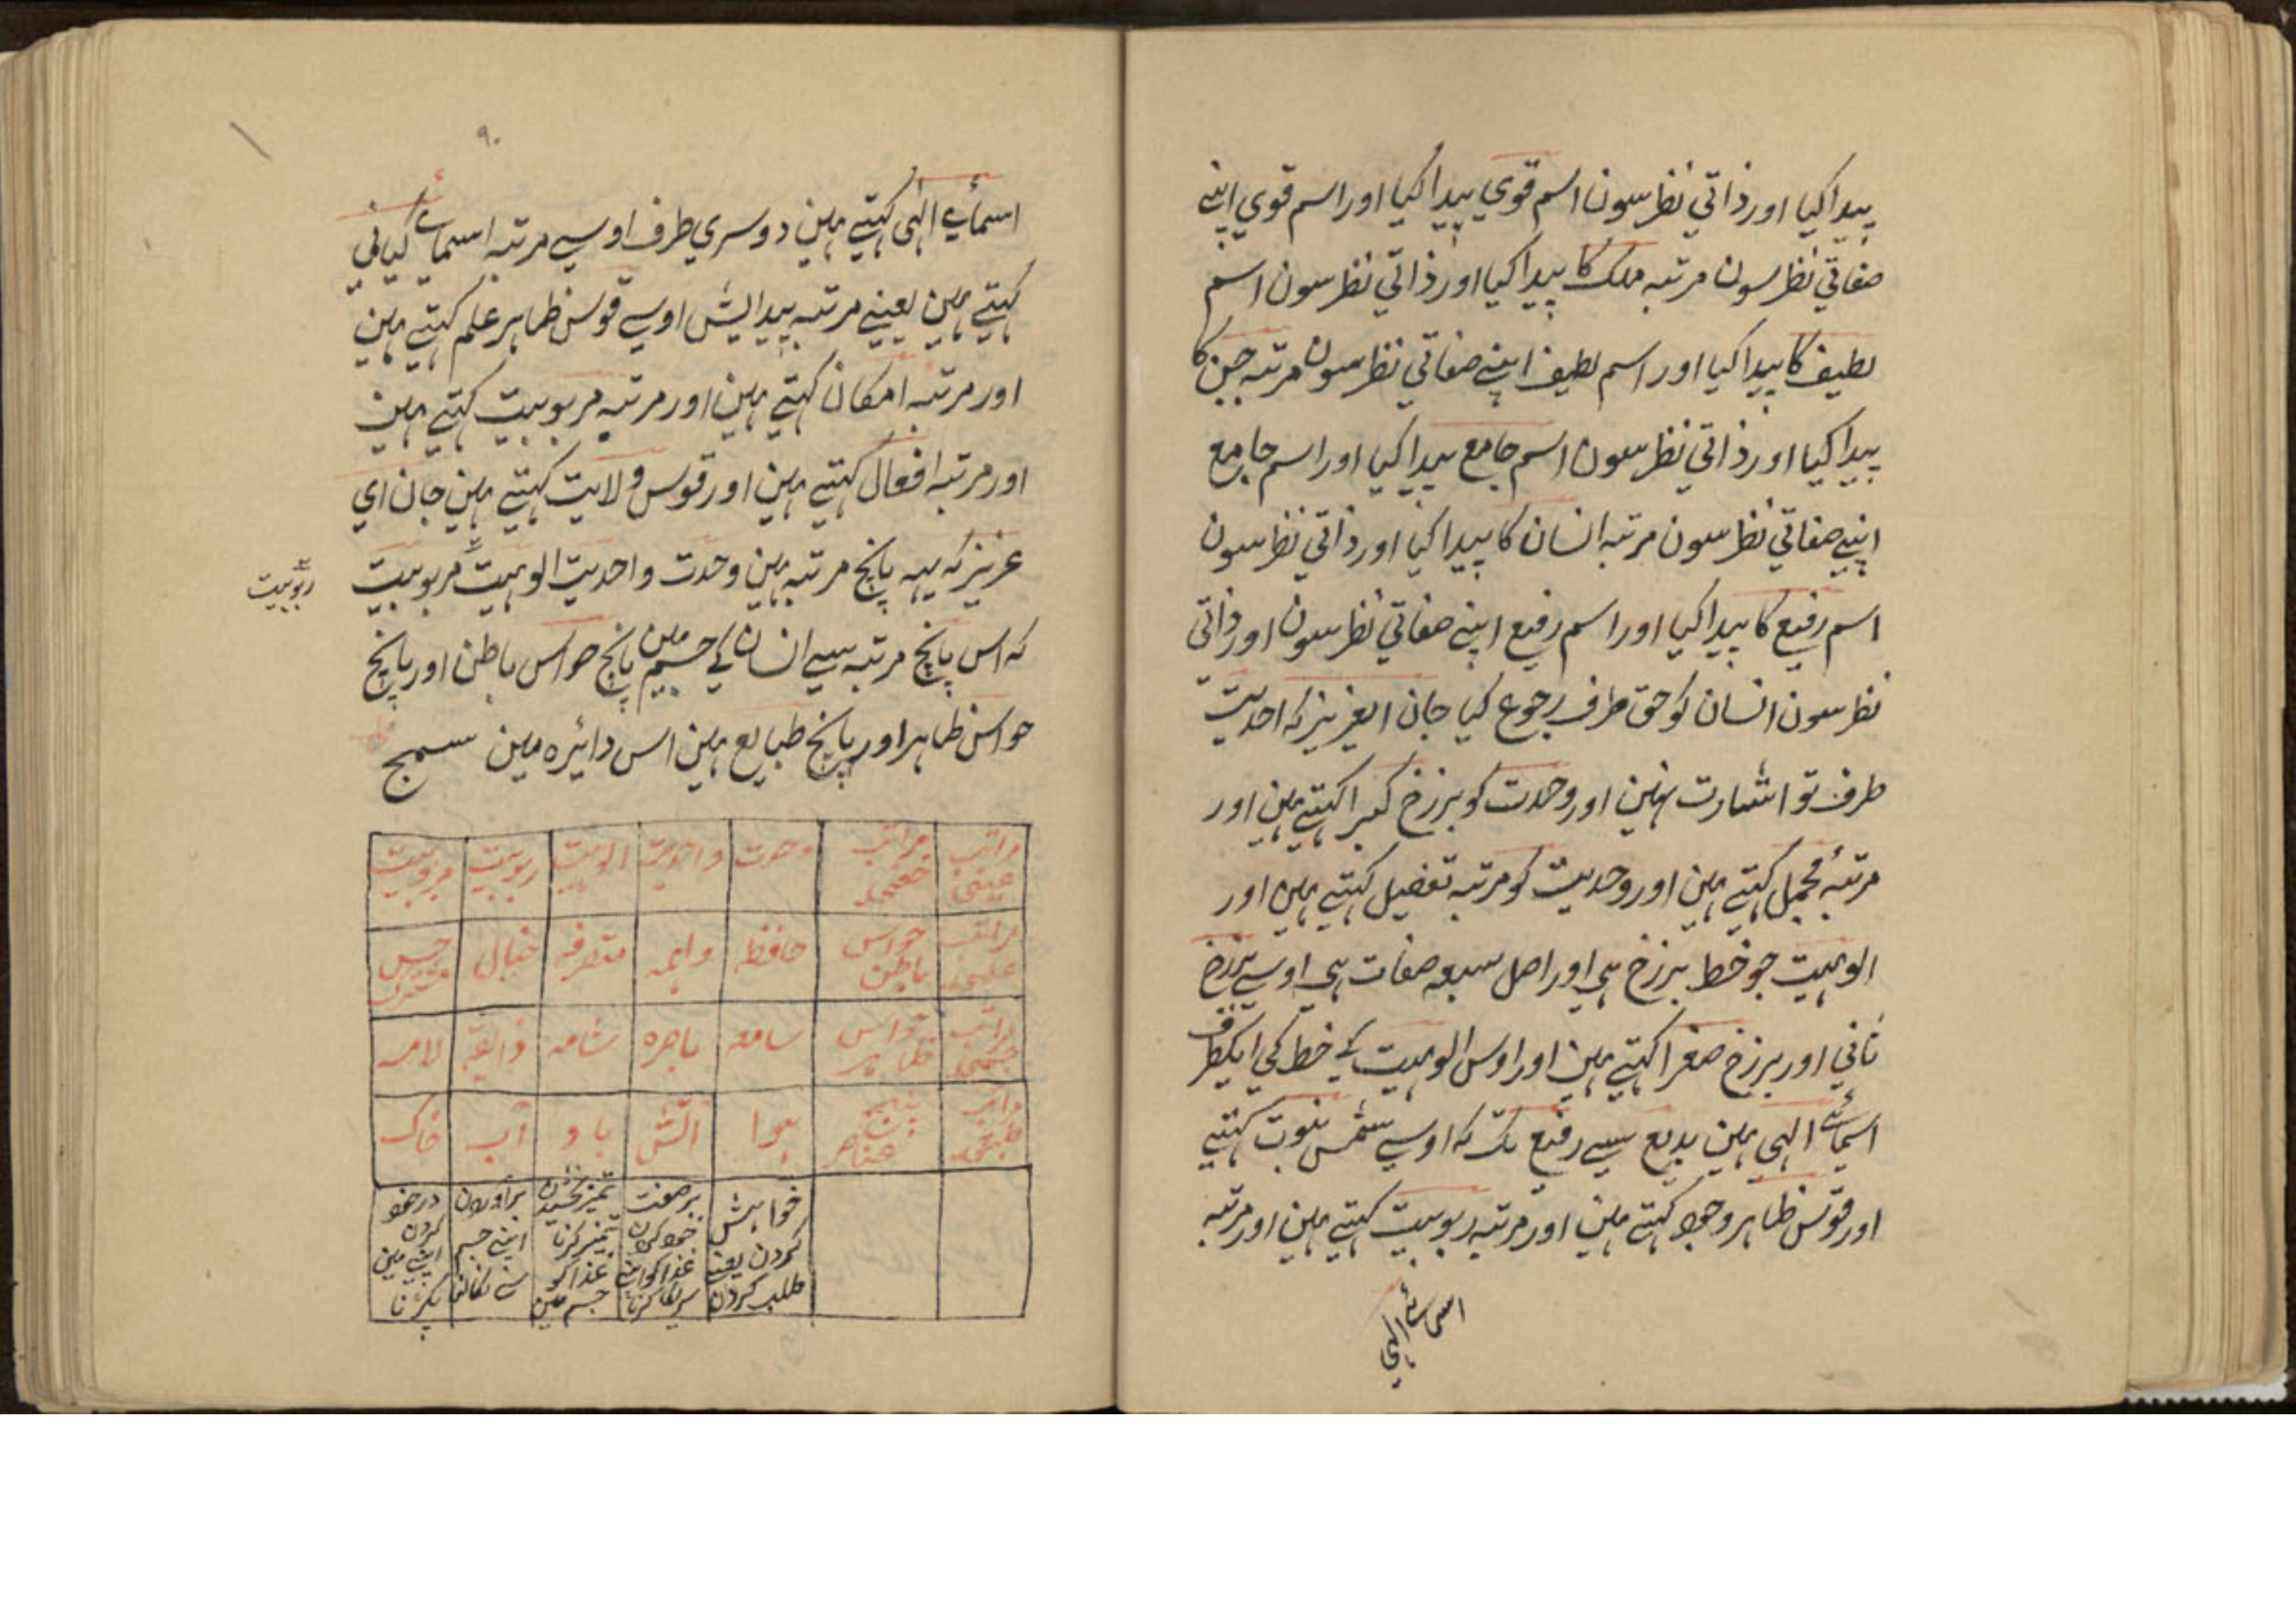 پیدا کیا اور ذاتي نظر سون اسم قوي پیدا کیا اور اسم قوي اپنے
صفاتي نظر سون مرتبہ ملک کا پیدا کیا اور ذاتي نظر سون اسم
لطیف کا پیدا کیا اور اسم لطیف اپنے صفاتي نظر سون مرتبہ جن کا
پیدا کیا اور ذاتي نظر سون اسم جامع پیدا کیا اور اسم جامع
اپنے صفاتي نظر سون مرتبہ انسان کا پیدا کیا اور ذاتي نظر سون
اسم رفیع کا پیدا کیا اور اسم رفیع اپنے صفاتي نظر سون اور ذاتي
نظر سون انسان کو حق طرف رجوع کیا جان ایعزیز کہ احدیت
طرف تو اشارت نہین اور وحدت کو برزخ کبرا کہتے ہین اور
مرتبۂ مجمل کہتے ہین اور وحدیت کو مرتبہ تفضیل کہتے ہین اور
الوہیت جو خط برزخ ہی اور اصل سبعہ صفات ہی اوسے برزخ
ثاني اور برزخ صغرا کہتے ہین اور اوس الوہیت کے خط کي ایکطرف
اسمائے الہي ہین بدیع سے رفیع تک کہ اوسے شمس نبوت کہتے
اور قوس ظاہر وجود کہتے ہین اور مرتبہ ربوبیت کہتے ہین اور مرتبہ
اسمائے الہي
۹۰
اسمائے الہی کہتے ہین دوسري طرف اوسے مرتبہ اسمائے کیاني
کہتے ہین یعنے مرتبہ پیدایش اوسے قوس ظاہر علم کہتے ہین
اور مرتبہ امکان کہتے ہین اور مرتبہ مربوبیت کہتے ہین
اور مرتبہ افعال کہتے ہین اور قوس ولایت کہتے ہین جان اي
عزیز کہ یہہ پانچ مرتبہ ہین وحدت واحدیت الوہیت مربوبیت
ربوبیت
کہ اس پانچ مرتبہ سے انسان کے جسم مین پانچ حواس باطن اور پانچ
حواس ظاہر اور پانچ طبایع ہین اس دائرہ مین سمج
مراتب عیني | مراتب | وحدت | واحدیت | الوہیت | ربوبیت | مربوبیت
مراتب علمي | حواس باطن | حافظہ | واہمہ | متصرفہ | خیال | حس مشترک
مراتب جسمي | حواس ظاہر | سامعہ | باصرہ | شامہ | ذایقہ | لامسہ
مراتب | پنج عناصر | ہوا | آتش | باد | آب | خاک
خواہش کردن یعنے طلب کردن | برصفت خود کردن غذا کو اپنے سریکا کرنا | تمیز کرنا غذا کو جسم مین | برآوردن اپنے جسم سے نکالنا | در خود کردن اپنے مین پکڑنا